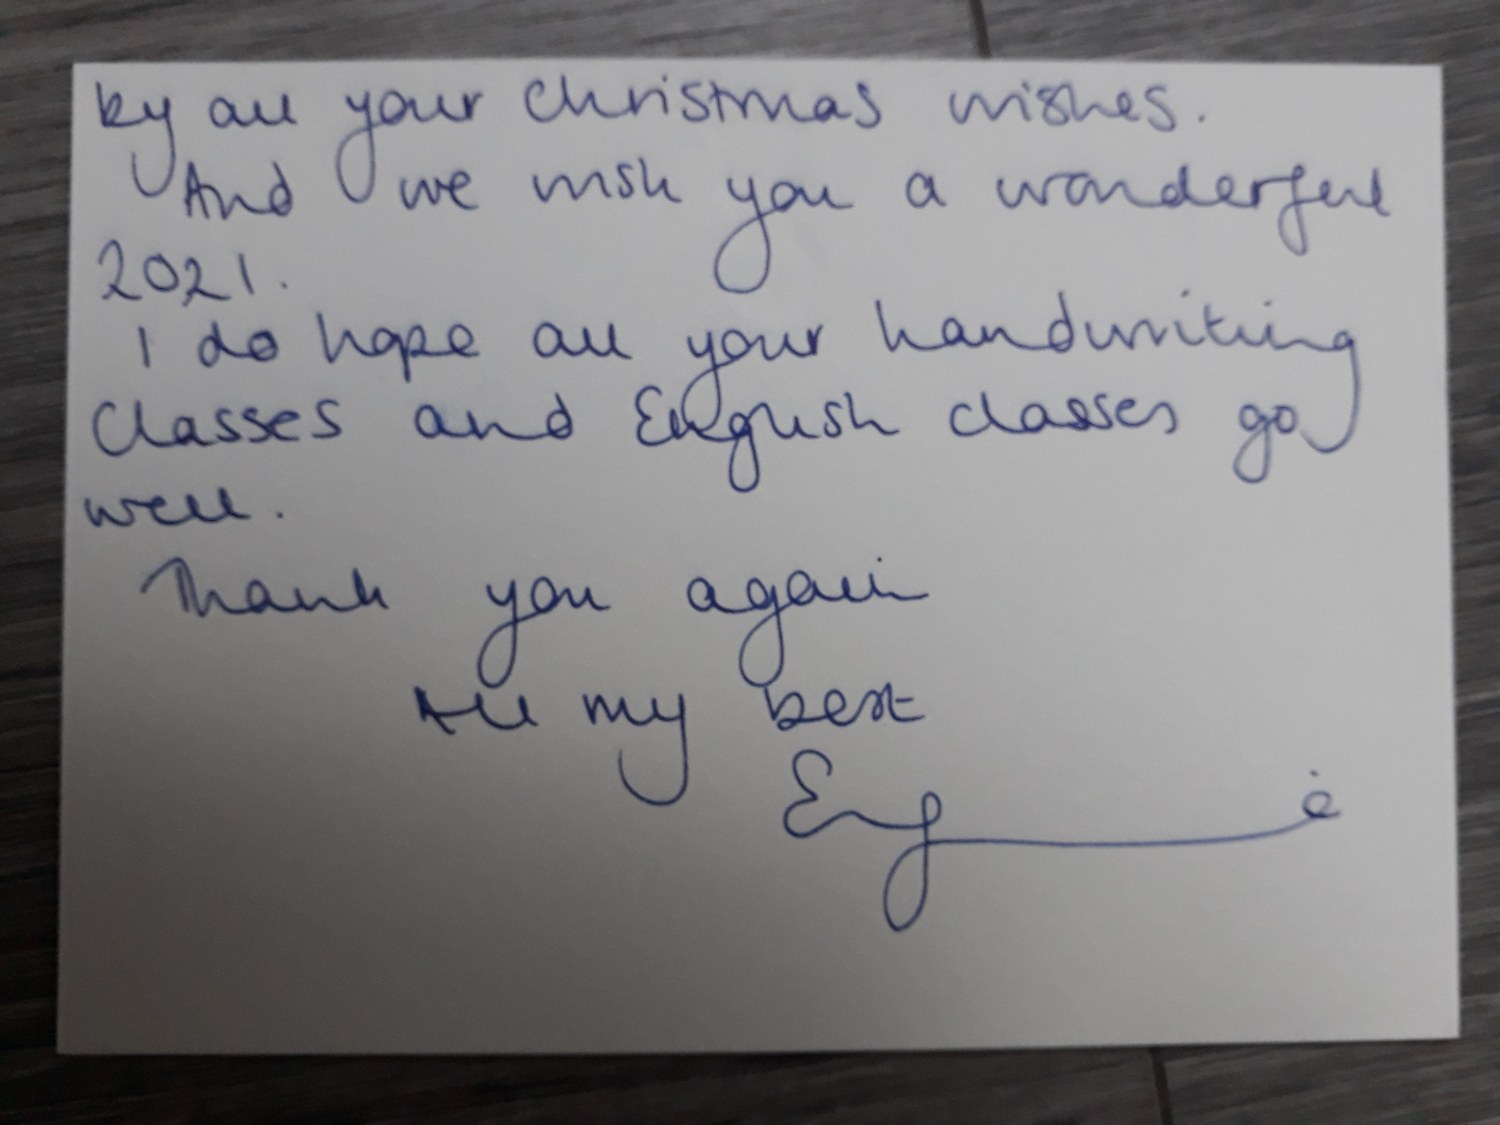 by all your Christmas wishes.
And we wish you a wonderful
2021.
I do hope all your handwriting
classes and English classes go
well.
Thank you again
All my best